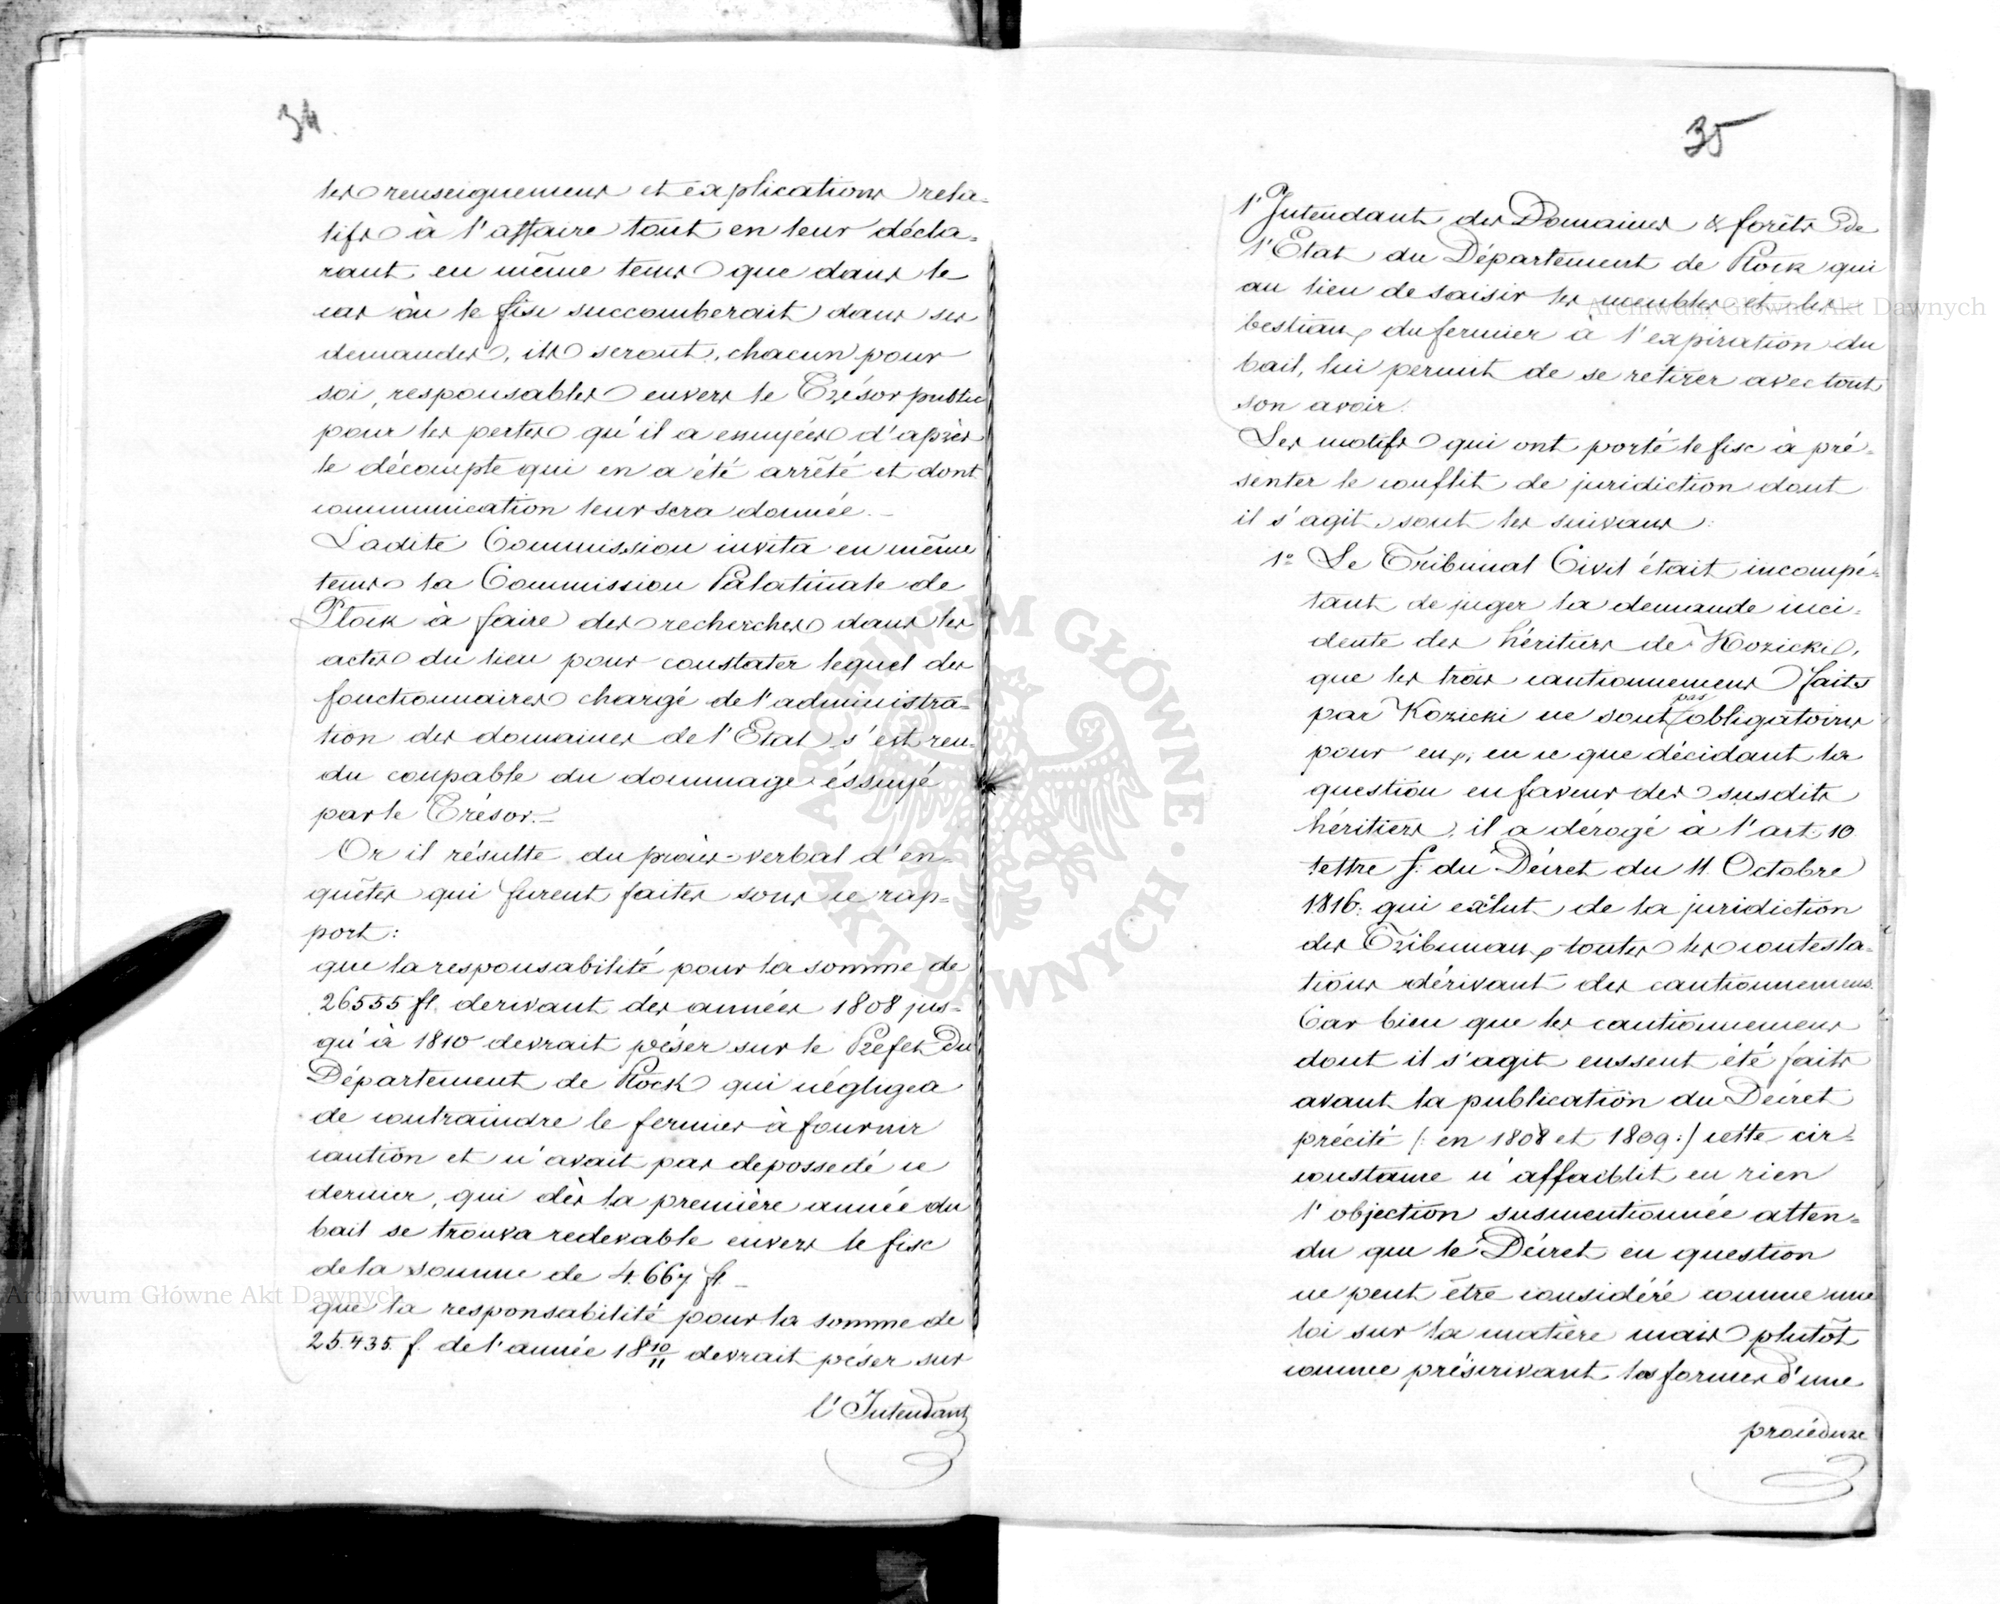 34.
les renseignemens et explications rela-
tifs à l'affaire tout en leur décla-
rant en même tems que dans le
cas où le fisc succomberait dans ses
demandes, ils seront, chacun pour
soi, responsables envers le Trésor public
pour les pertes qu'il a essuyées d'après
le décompte qui en a été arrêté et dont
communication leur sera donnée.-
Ladite Commission invita en même
tems la Commission Palatinale de
Plock à faire des recherches dans les
actes du lieu pour constater lequel des
fonctionnaires chargé de l'administra-
tion des domaines de l'Etat s'est ren-
du coupable du dommage éssuyé
par le Trésor.-
Or il résulte du procès-verbal d'en-
quêtes qui furent faites sous ce rap-
port:
que la responsabilité pour la somme de
26555 fl. derivant des années 1808 jus-
qu'à 1810 devrait péser sur le Préfet du
Département de Plock qui négligea
de contraindre le fermier à fournir
caution et n'avait pas depossedé ce
dernier, qui dès la première année du
bail se trouva redevable envers le fisc
de la somme de 4.667 fl.-
que la responsabilité pour la somme de
25.435. f. de l'année 18 10/11 devrait péser sur
l'Intendant
35
l'Intendant des Domaines & forêts de
l'Etat du Département de Plock qui
au lieu de saisir les meubles et les
bestiaux du fermier à l'expiration du
bail, lui permit de se retirer avec tout
son avoir.
Les motifs qui ont porté le fisc à pré-
senter le conflit de juridiction dont
il s'agit, sont les suivans:
1º Le Tribunal Civil était incompé-
tant de juger la demande inci-
dente des héritiers de Kozicki,
que les trois cautionnemens faits
par Kozicki ne sont pas obligatoires
pour eux, en ce que décidant la
question en faveur des susdits
héritiers, il a dérogé à l'art. 10
lettre f. du Décret du 11. Octobre
1816. qui exclut de la juridiction
des Tribunaux toutes les contesta-
tions dérivant des cautionnemens.
Car bien que les cautionnemens
dont il s'agit eussent été faits
avant la publication du Décret
précité /: en 1808 et 1809 :/ cette cir-
constance n'affaiblit en rien
l'objection susmentionnée atten-
du que le Décret en question
ne peut être considéré comme une
loi sur la matière mais plutôt
comme préscrivant les formes d'une
procédure
Archiwum Główne Akt Dawnych
Archiwum Główne Akt Dawnych
ARCHIWUM GŁÓWNE · AKT DAWNYCH ·